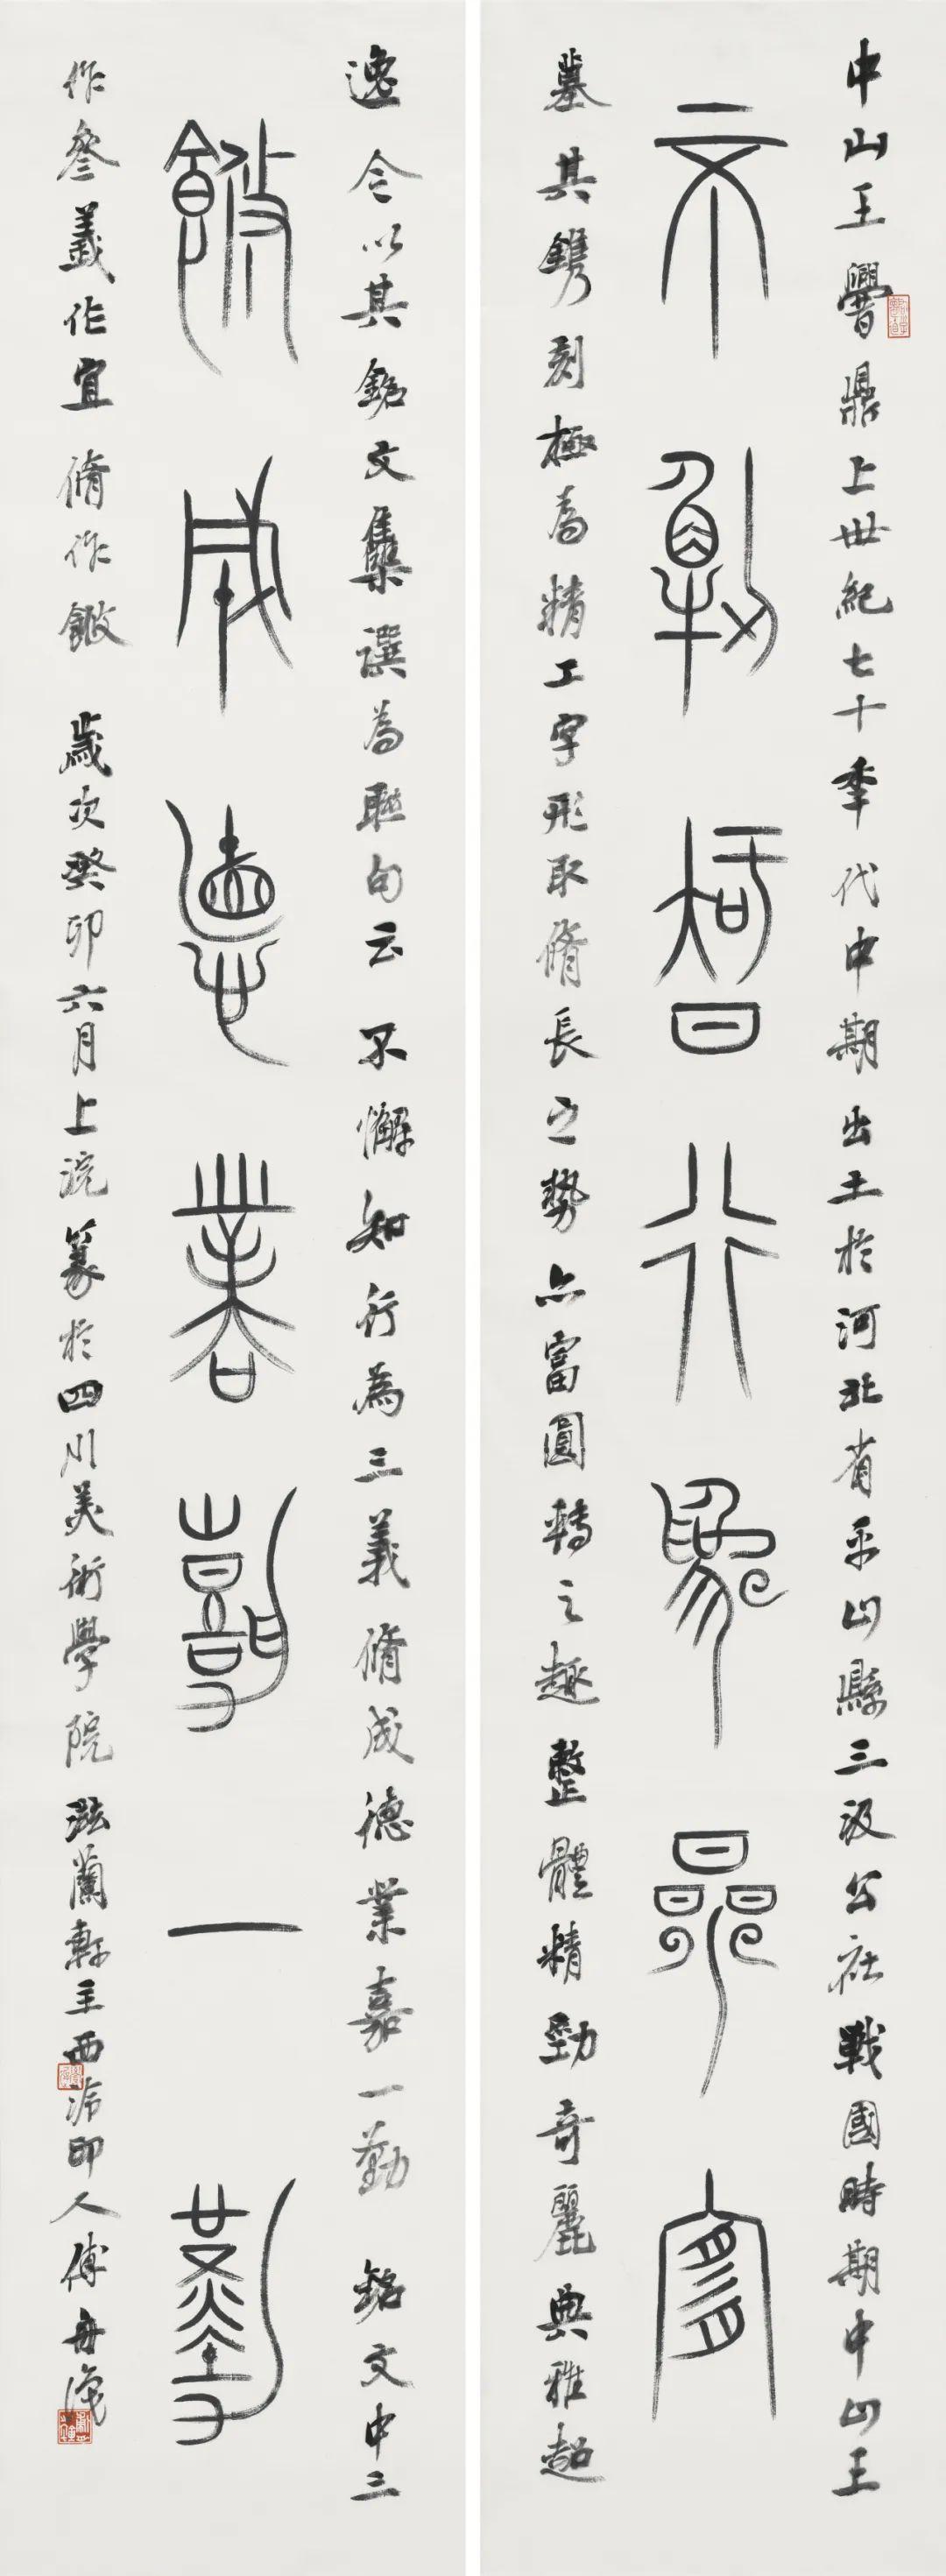 中山王鼎上世紀七十秊代中期出土於河北省平山縣三汲公社戰國時期中山王
不懈智行為參宜
墓其鐫刻極為精工字形取脩長之勢亦富圓轉之趣整體精勁奇麗典雅超
逸今以其銘文集選為聯句云不懈知行為三義脩成德業嘉一勤銘文中三
脩成悳業嘉一勤
作叄義作宜脩作䬛歲次癸卯六月上浣篆於四川美術學院泓蘭軒主西泠印人傅舟識